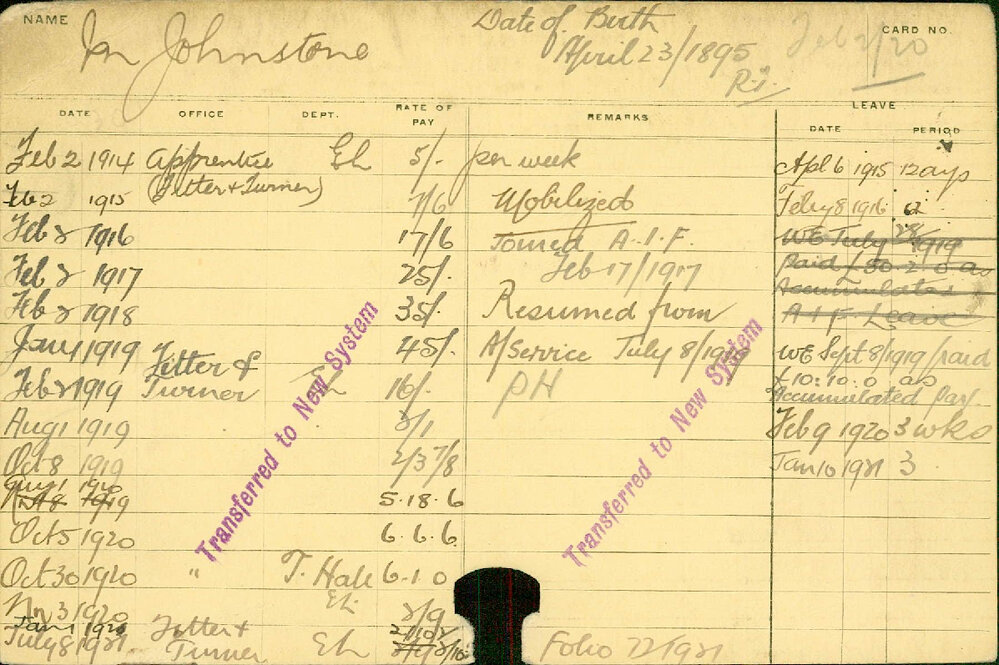 NAME
Johnstone
Date of Birth
April 23/1895
R.i.
Feb 2/20
CARD NO.
DATE OFFICE DEPT. RATE OF PAY REMARKS LEAVE
DATE PERIOD
Feb 2 1914 Apprentice EL 5/- per week Apl 6 1915 12 days
(Fitter & Turner)
Feb 2 1915 7/6 Mobilized Feby 8 1916 12
Feb 2 1916 17/6 Joined A.I.F. WE July 28/1919
Feb 17/1917 Paid £50.2.0 as
Feb 2 1917 25/- Accumulated
Feb 2 1918 35/- Resumed from A I F Leave
Jany 1 1919 Fitter & 45/- A/Service July 8/19 WE Sept 8/1919 paid
Feb 2 1919 Turner 16/- PH £10:10.0 as
Accumulated pay
Aug 1 1919 2/1 Feb 9 1920 3 wks
Oct 8 1919 2/3 7/8 Jan 10 1921 3
Aug 1 1920
Oct 8 1919 5.18.6
Oct 5 1920 6.6.6
Oct 30 1920 " T. Hall 6.1.0
Nov 3 1920 EL 2/9
Jan 1 1920
July 8 1921 Fitter & Turner EL Folio 72/1921
Transferred to New System
Transferred to New System